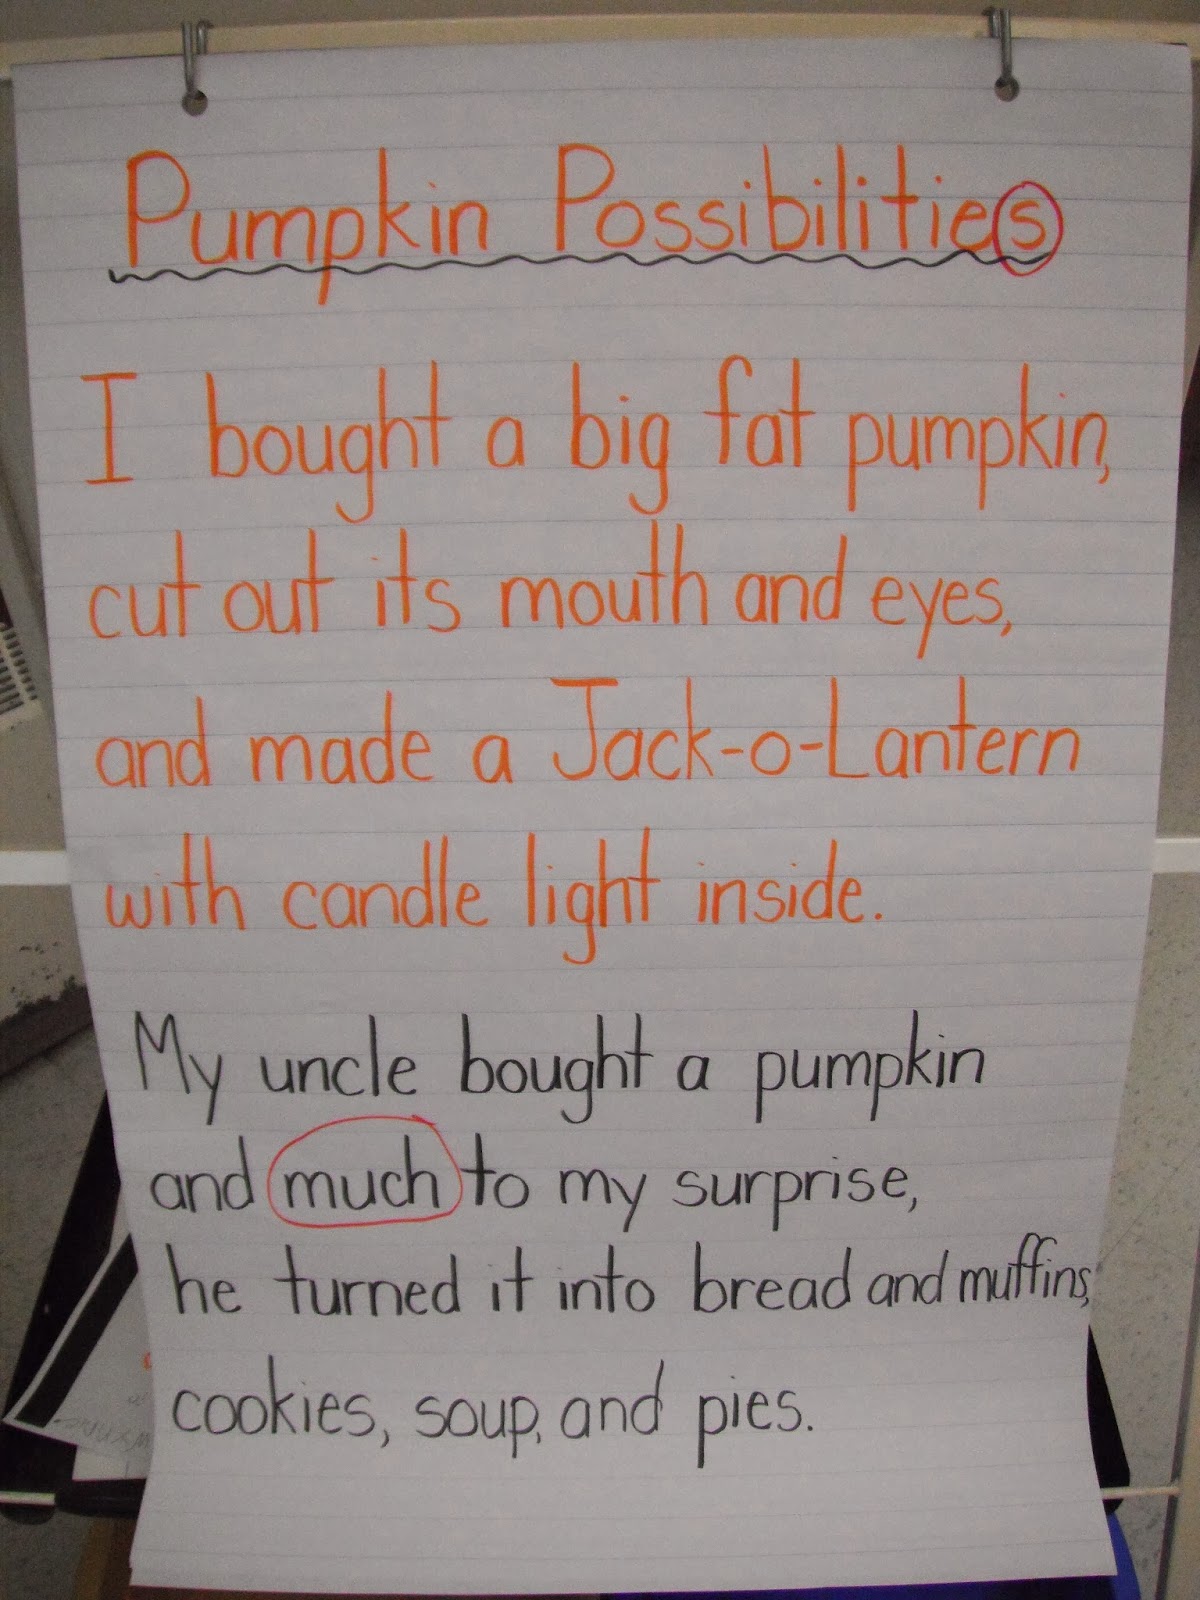 Pumpkin Possibilities
I bought a big fat pumpkin,
cut out its mouth and eyes,
and made a Jack-o-Lantern
with candle light inside.
My uncle bought a pumpkin
and much to my surprise,
he turned it into bread and muffins,
cookies, soup, and pies.